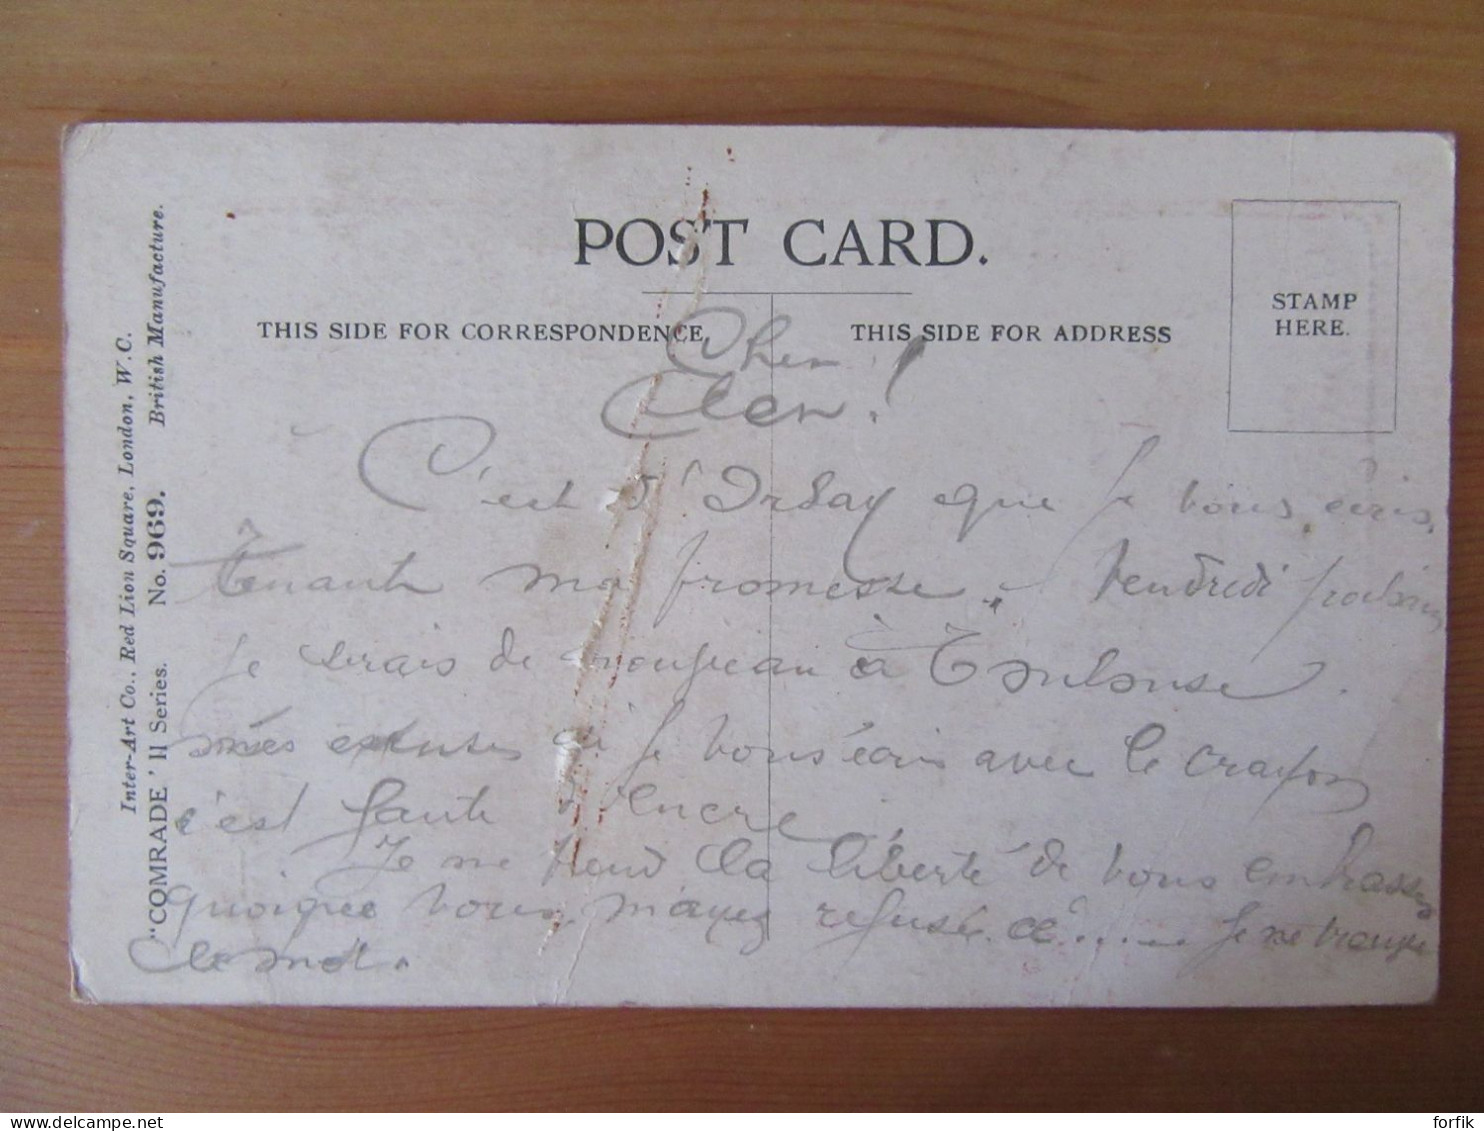 POST CARD.
THIS SIDE FOR CORRESPONDENCE
THIS SIDE FOR ADDRESS
STAMP
HERE.
Inter-Art Co., Red Lion Square, London, W.C.
"COMRADE" Series. No. 969. British Manufacture.
Cher
C'est d'Orsay que je vous écris.
Tenant ma promesse. Vendredi
je serais de nouveau à Toulouse.
més excuses si je vous écris avec le crayon
c'est faute d'encre
Je me la liberté de vous embrasser
quoique vous m'ayez refusé ce...... je ne trouve
le mot.
forfik